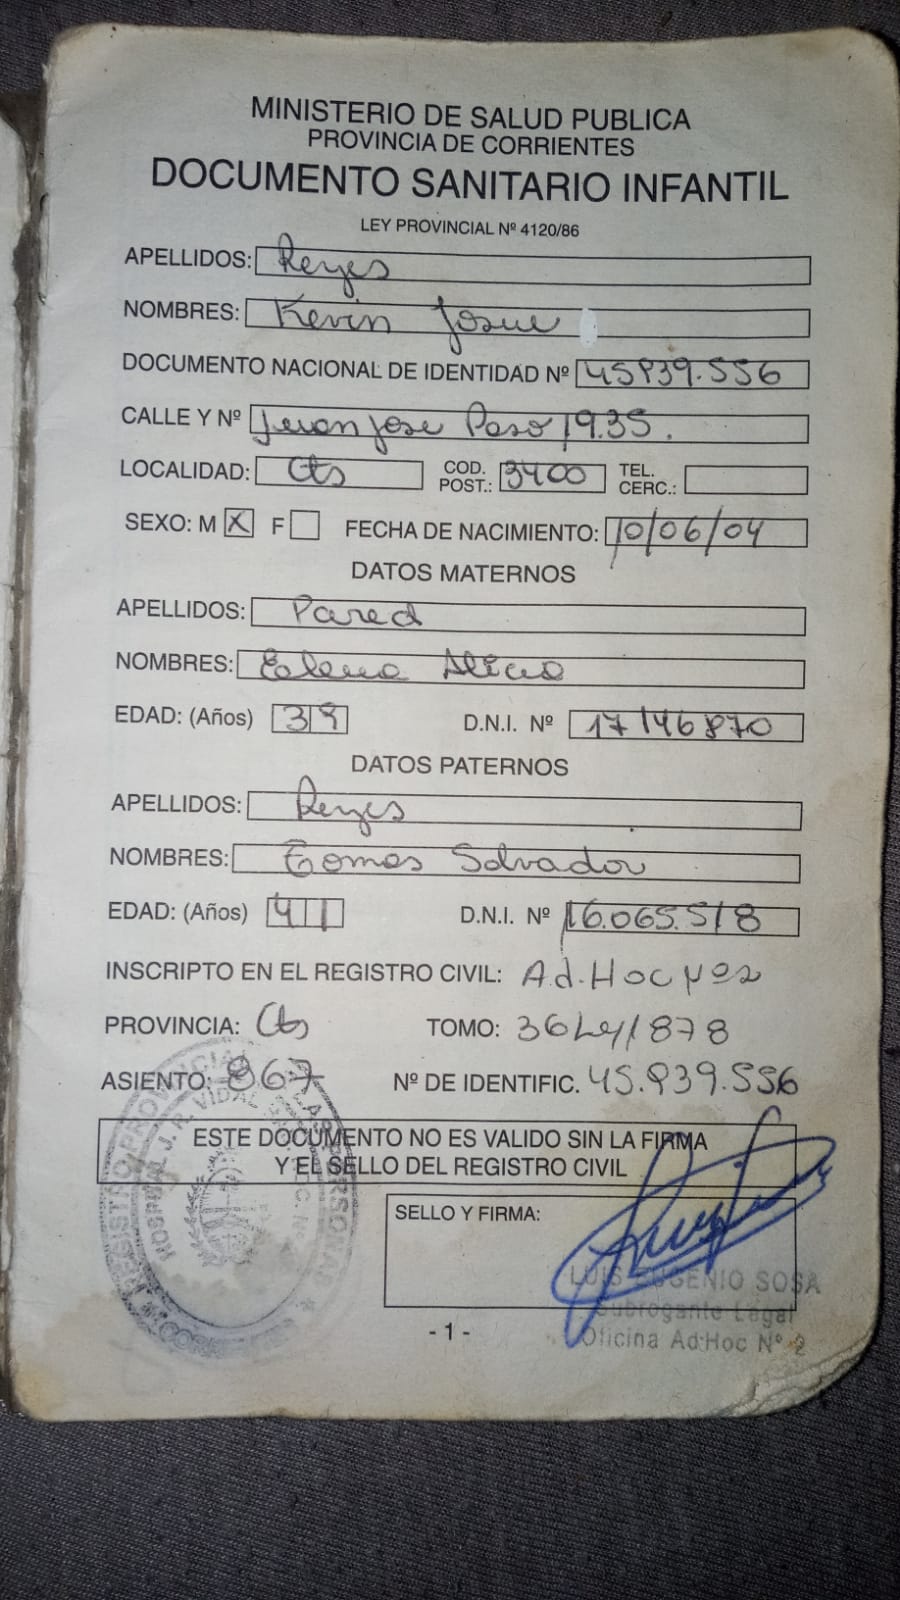 MINISTERIO DE SALUD PUBLICA
PROVINCIA DE CORRIENTES
DOCUMENTO SANITARIO INFANTIL
LEY PROVINCIAL Nº 4120/86
APELLIDOS: Reyes
NOMBRES: Kevin Josue
DOCUMENTO NACIONAL DE IDENTIDAD Nº 45.939.556
CALLE Y Nº Juan Jose Paso 1935.
LOCALIDAD: Cts COD. POST.: 3400 TEL. CERC.:
SEXO: M X F FECHA DE NACIMIENTO: 10/06/04
DATOS MATERNOS
APELLIDOS: Pared
NOMBRES: Elena Alicia
EDAD: (Años) 39 D.N.I. Nº 17146870
DATOS PATERNOS
APELLIDOS: Reyes
NOMBRES: Tomas Salvador
EDAD: (Años) 41 D.N.I. Nº 16.065.518
INSCRIPTO EN EL REGISTRO CIVIL: Ad.Hoc
PROVINCIA: Cts TOMO:
ASIENTO: 867 Nº DE IDENTIFIC. 45.939.556
ESTE DOCUMENTO NO ES VALIDO SIN LA FIRMA
Y EL SELLO DEL REGISTRO CIVIL
REGISTRO PROVINCIAL DE LAS PERSONAS
HOSPITAL J. R. VIDAL
SELLO Y FIRMA:
LUIS EUGENIO SOSA
Subrogante Legal
Oficina Ad:Hoc Nº 2
- 1 -